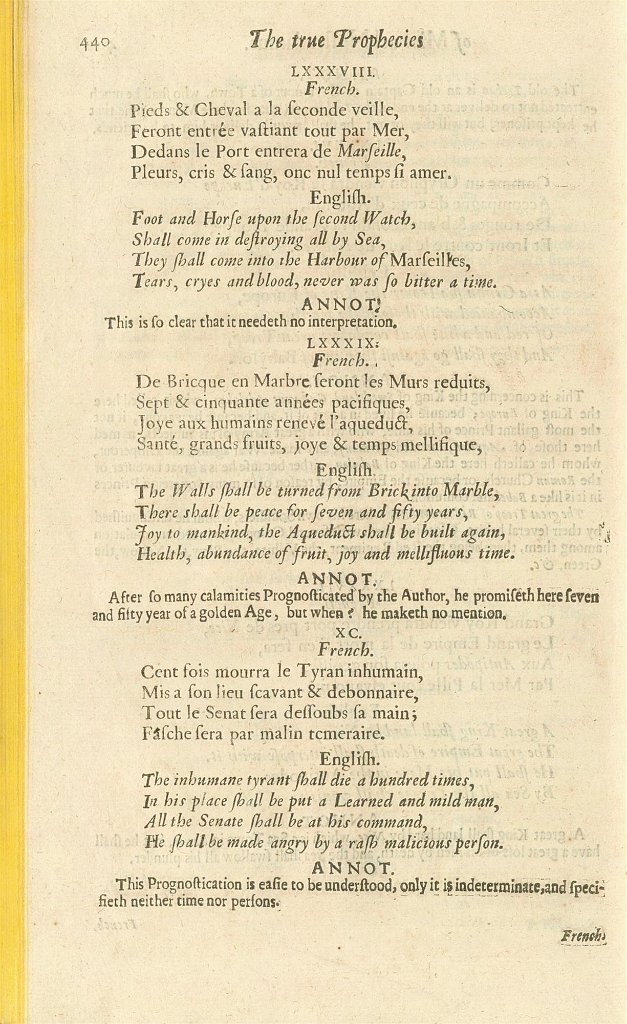 440 The true Prophecies
LXXXVIII.
French.
Pieds & Cheval a la ſeconde veille,
Feront entrée vaſtiant tout par Mer,
Dedans le Port entrera de Marſeille,
Pleurs, cris & ſang, onc nul temps ſi amer.
Engliſh.
Foot and Horſe upon the ſecond Watch,
Shall come in deſtroying all by Sea,
They ſhall come into the Harbour of Marſeilles,
Tears, cryes and blood, never was ſo bitter a time.
ANNOT.
This is ſo clear that it needeth no interpretation.
LXXXIX.
French.
De Bricque en Marbre ſeront les Murs reduits,
Sept & cinquante années pacifiques,
Joye aux humains renevé l'aqueduct,
Santé, grands fruits, joye & temps mellifique,
Engliſh.
The Walls ſhall be turned from Brick into Marble,
There ſhall be peace for ſeven and fifty years,
Joy to mankind, the Aqueduct ſhall be built again,
Health, abundance of fruit, joy and mellifluous time.
ANNOT.
After ſo many calamities Prognoſticated by the Author, he promiſeth here ſeven
and fifty year of a golden Age, but when? he maketh no mention.
XC.
French.
Cent fois mourra le Tyran inhumain,
Mis a ſon lieu ſcavant & debonnaire,
Tout le Senat ſera deſſoubs ſa main;
Faſche ſera par malin temeraire.
Engliſh.
The inhumane tyrant ſhall die a hundred times,
In his place ſhall be put a Learned and mild man,
All the Senate ſhall be at his command,
He ſhall be made angry by a raſh malicious perſon.
ANNOT.
This Prognoſtication is eaſie to be underſtood, only it is indeterminate, and ſpeci-
fieth neither time nor perſons.
French.